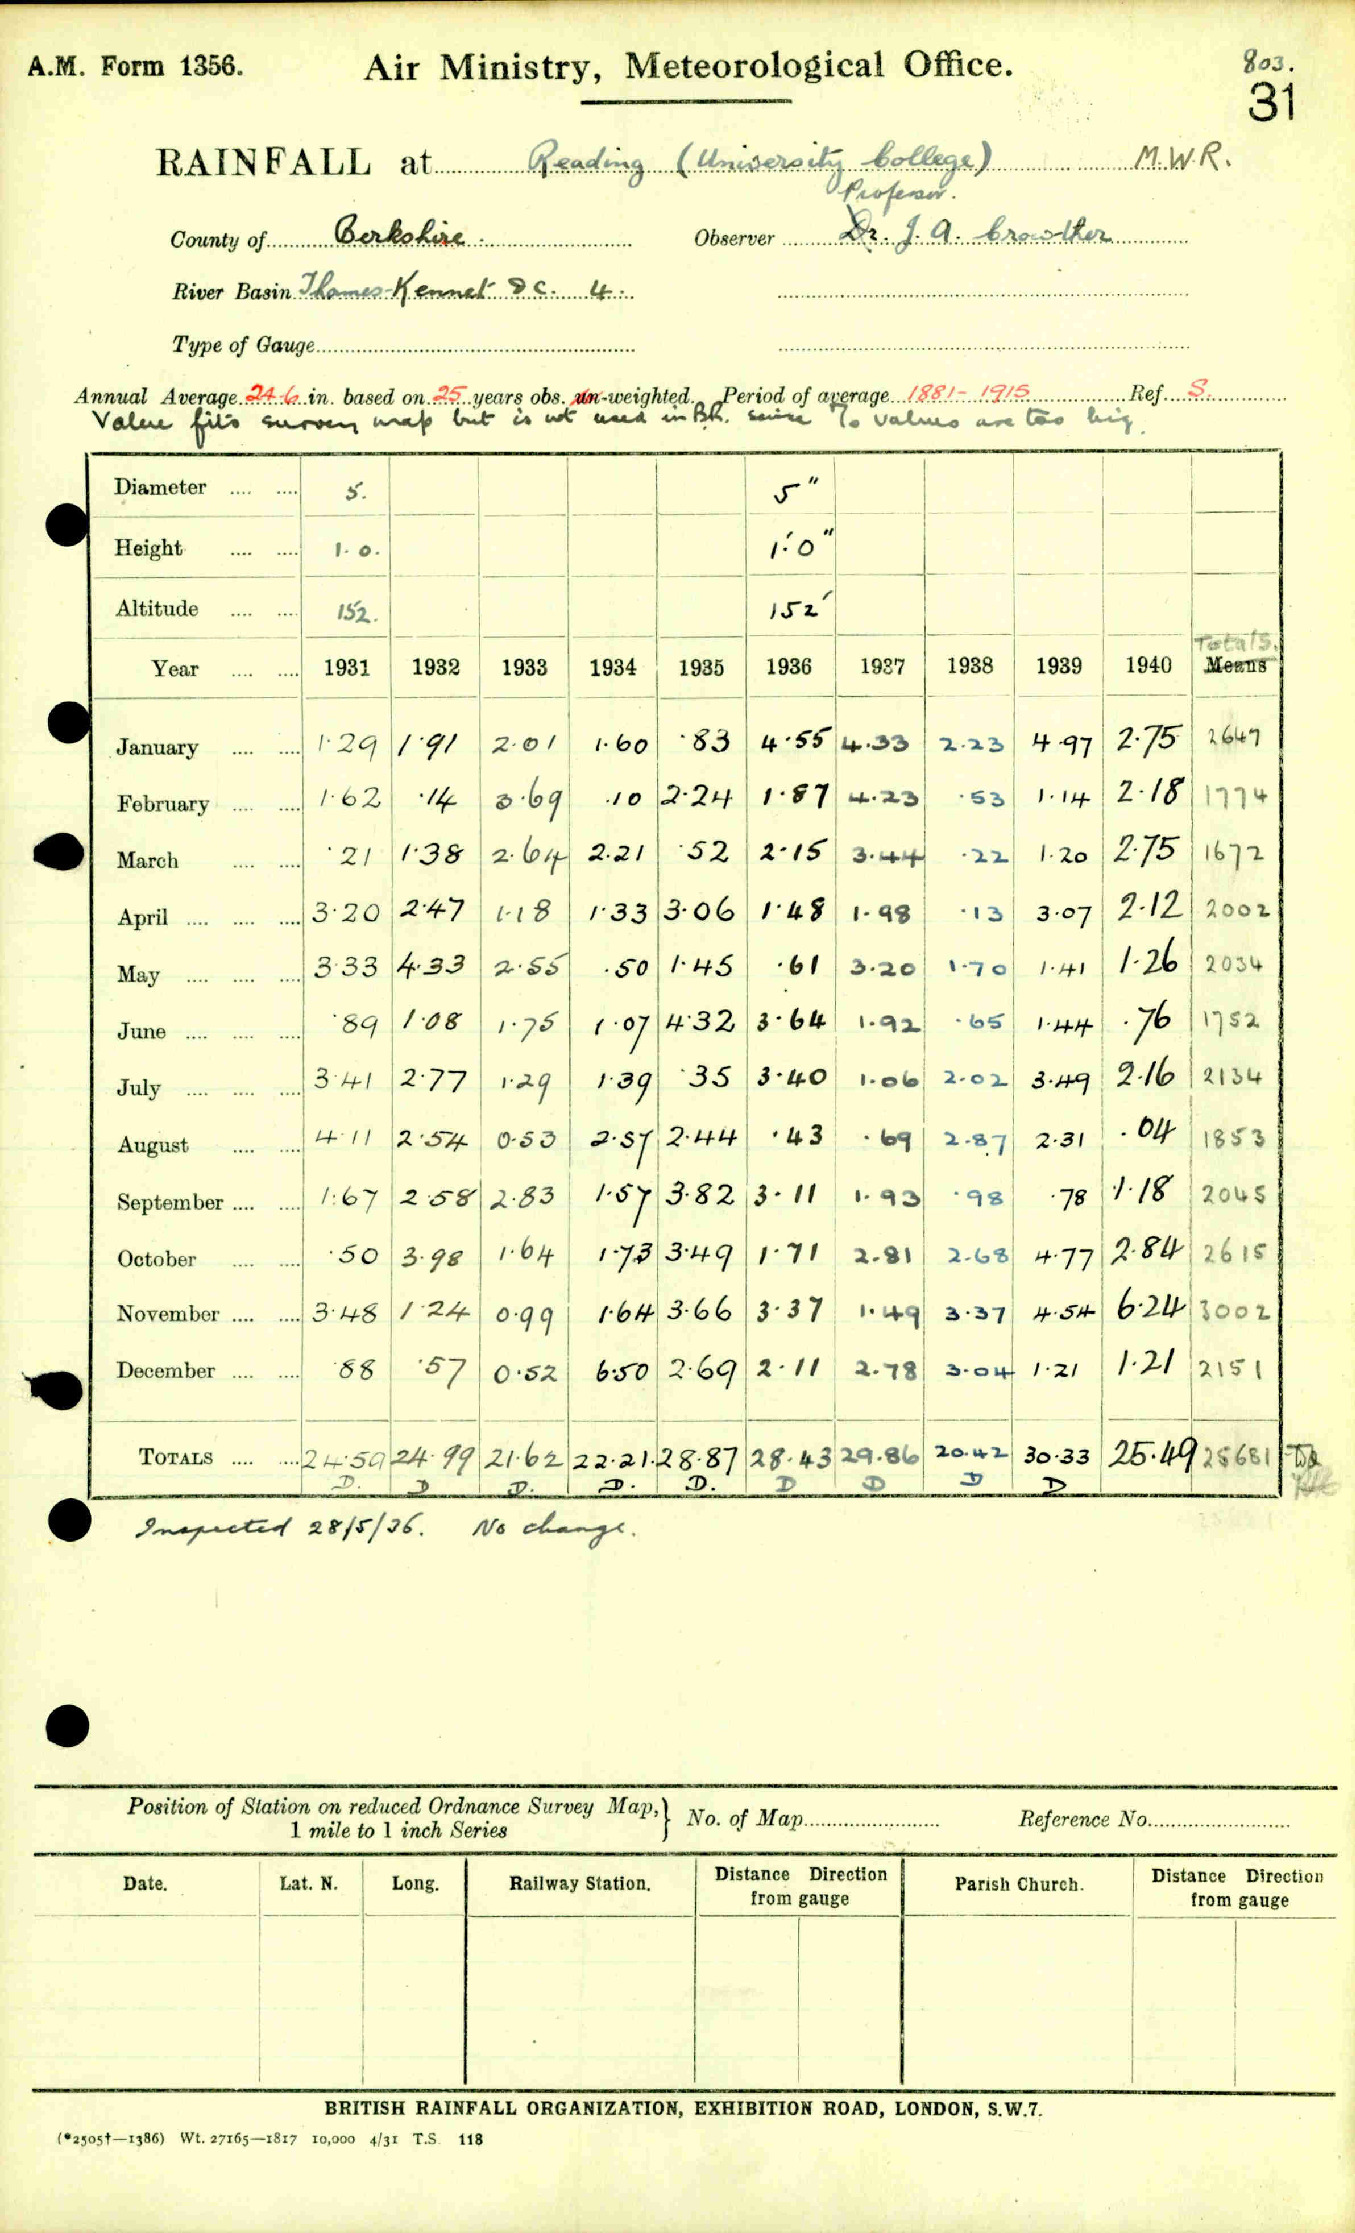 A.M. Form 1356. Air Ministry, Meteorological Office. 803.
31
RAINFALL at Reading (University College) M.W.R.
Professor.
County of Berkshire. Observer Dr. J. A. Crowther
River Basin Thames-Kennet D C. 4.
Type of Gauge
Annual Average 24.6 in. based on 25 years obs. un-weighted. Period of average 1881-1915 Ref. S.
Value fits survey map but is not used in B.R. since % values are too big.
Diameter .... .... 5. 5"
Height .... .... 1. 0. 1'.0"
Altitude .... .... 152. 152'
Totals.
Year .... .... 1931 1932 1933 1934 1935 1936 1937 1938 1939 1940 Means
January .... .... 1.29 1.91 2.01 1.60 .83 4.55 4.33 2.23 4.97 2.75 2647
February .... .... 1.62 .14 3.69 .10 2.24 1.87 4.23 .53 1.14 2.18 1774
March .... .... .21 1.38 2.64 2.21 .52 2.15 3.44 .22 1.20 2.75 1672
April .... .... .... 3.20 2.47 1.18 1.33 3.06 1.48 1.98 .13 3.07 2.12 2002
May .... .... .... 3.33 4.33 2.55 .50 1.45 .61 3.20 1.70 1.41 1.26 2034
June .... .... .... .89 1.08 1.75 1.07 4.32 3.64 1.92 .65 1.44 .76 1752
July .... .... .... 3.41 2.77 1.29 1.39 .35 3.40 1.06 2.02 3.49 2.16 2134
August .... .... 4.11 2.54 0.53 2.57 2.44 .43 .69 2.87 2.31 .04 1853
September .... .... 1.67 2.58 2.83 1.57 3.82 3.11 1.93 .98 .78 1.18 2045
October .... .... .50 3.98 1.64 1.73 3.49 1.71 2.81 2.68 4.77 2.84 2615
November .... .... 3.48 1.24 0.99 1.64 3.66 3.37 1.49 3.37 4.54 6.24 3002
December .... .... .88 .57 0.52 6.50 2.69 2.11 2.78 3.04 1.21 1.21 2151
TOTALS .... .... 24.59 24.99 21.62 22.21. 28.87 28.43 29.86 20.42 30.33 25.49 25681
D. D D. D. D. D D D D
Inspected 28/5/36. No change.
Position of Station on reduced Ordnance Survey Map, } No. of Map Reference No.
1 mile to 1 inch Series
Date. Lat. N. Long. Railway Station. Distance Direction from gauge Parish Church. Distance Direction from gauge
BRITISH RAINFALL ORGANIZATION, EXHIBITION ROAD, LONDON, S.W.7.
(*2505†—1386) Wt. 27165—1817 10,000 4/31 T.S. 118